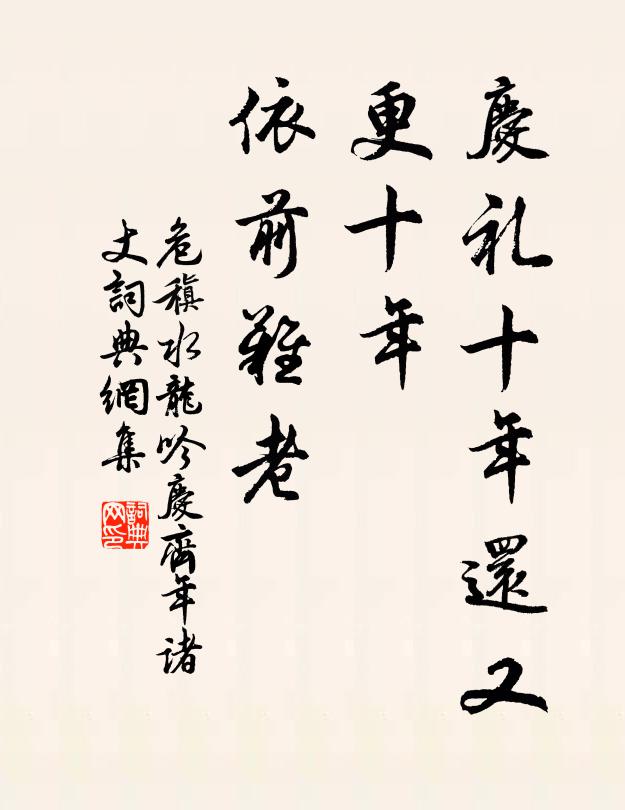 慶礼十年還又
更十年
依前難老
危稹水龍吟慶齊年諸
丈詞典網集
詞典网印